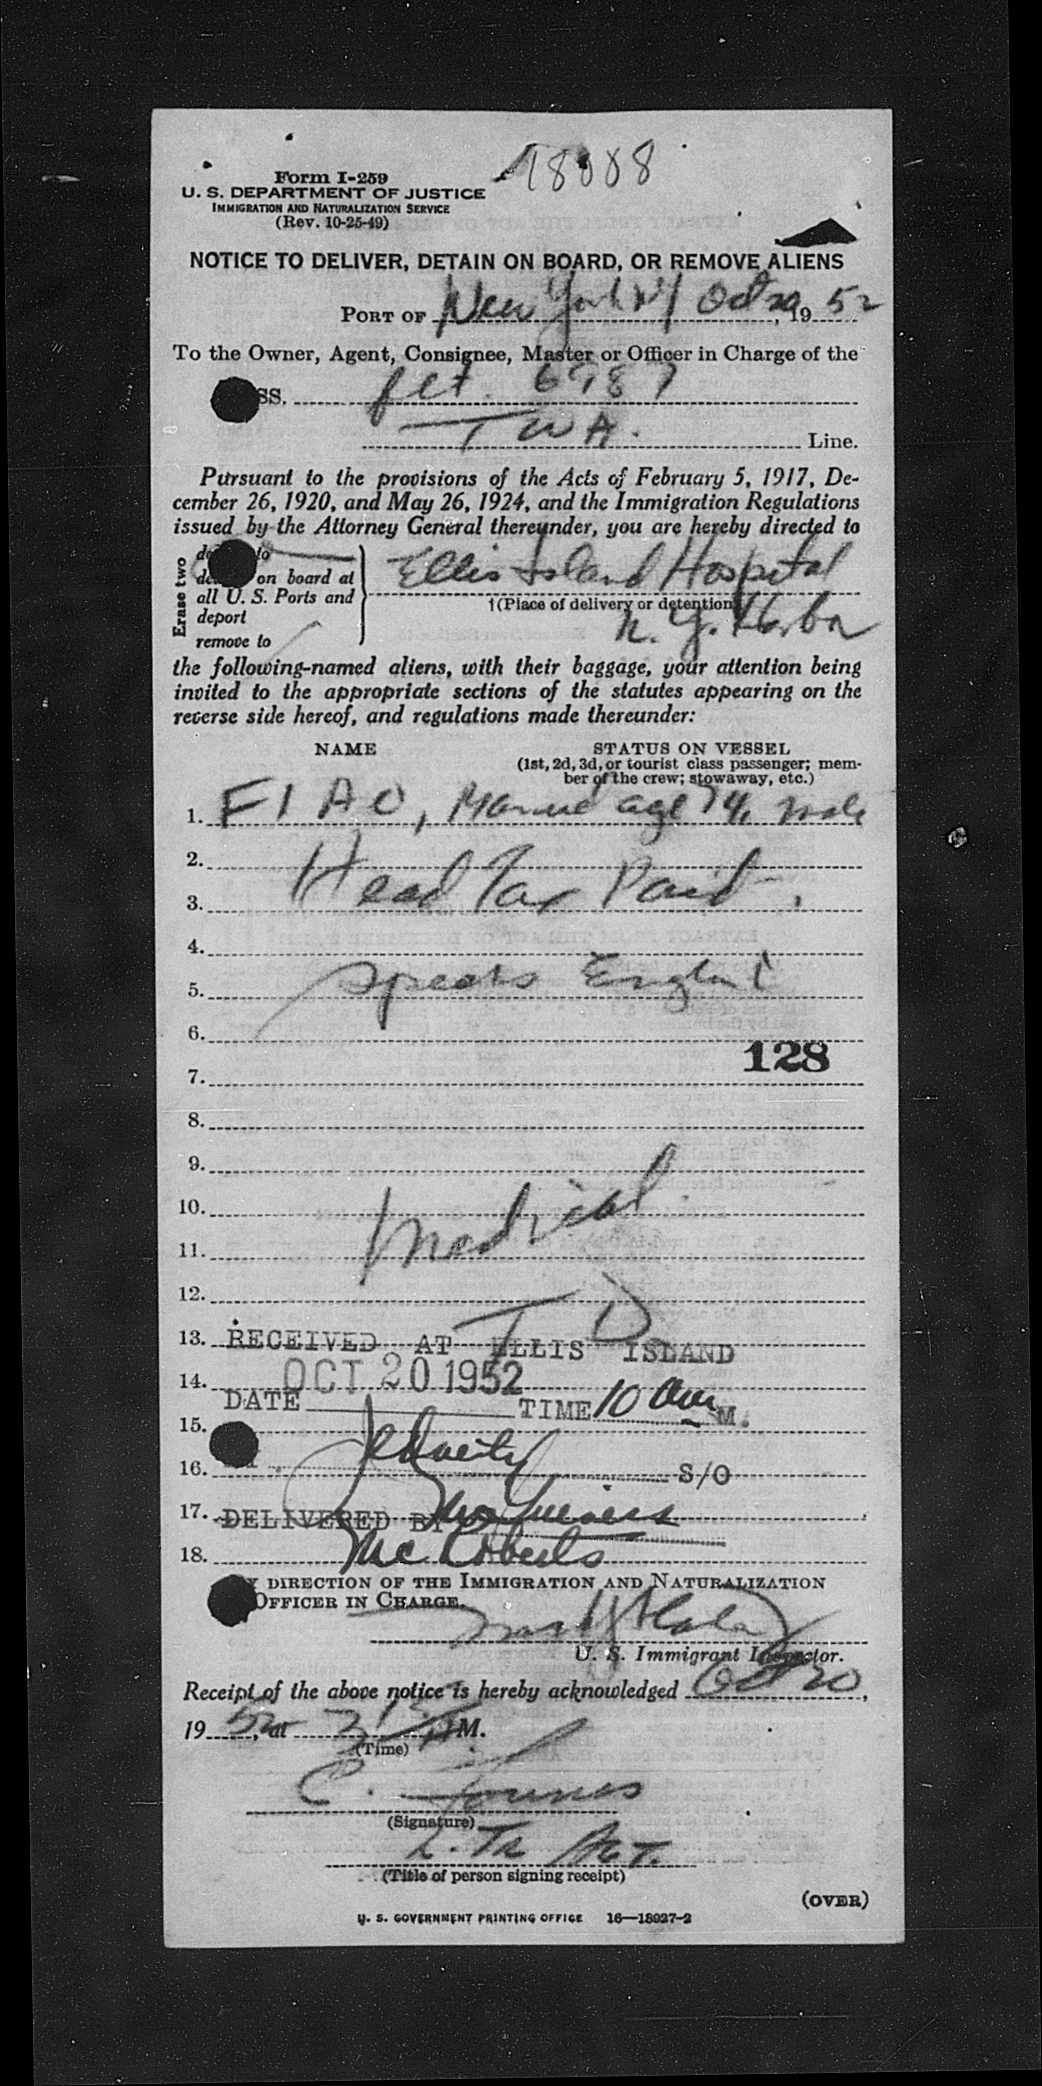 18008
Form I-259
U. S. DEPARTMENT OF JUSTICE
IMMIGRATION AND NATURALIZATION SERVICE
(Rev. 10-25-49)
NOTICE TO DELIVER, DETAIN ON BOARD, OR REMOVE ALIENS
PORT OF New York NY Oct 20, 1952
To the Owner, Agent, Consignee, Master or Officer in Charge of the
SS. flt. 6987
TWA. Line.
Pursuant to the provisions of the Acts of February 5, 1917, De-
cember 26, 1920, and May 26, 1924, and the Immigration Regulations
issued by the Attorney General thereunder, you are hereby directed to
Erase two
to
on board at
all U. S. Ports and
deport
remove to
Ellis Island Hospital
†(Place of delivery or detention)
N. Y. Harbor
the following-named aliens, with their baggage, your attention being
invited to the appropriate sections of the statutes appearing on the
reverse side hereof, and regulations made thereunder:
NAME STATUS ON VESSEL
(1st, 2d, 3d, or tourist class passenger; mem-
ber of the crew; stowaway, etc.)
1. FIAO, age 74, male
2.
3. Head Tax Paid.
4.
5. Speaks English
6.
128
7.
8.
9.
10.
11. Medical
12.
13. T D
RECEIVED AT ELLIS ISLAND
14. OCT 20 1952
DATE TIME 10 M.
15.
16. S/O
17. DELIVERED BY McGuiness
18. McRoberts
BY DIRECTION OF THE IMMIGRATION AND NATURALIZATION
OFFICER IN CHARGE.
U. S. Immigrant Inspector.
Receipt of the above notice is hereby acknowledged Oct 20,
1952, at M.
(Time)
C.
(Signature)
(Title of person signing receipt)
(OVER)
U. S. GOVERNMENT PRINTING OFFICE 16—18027-2